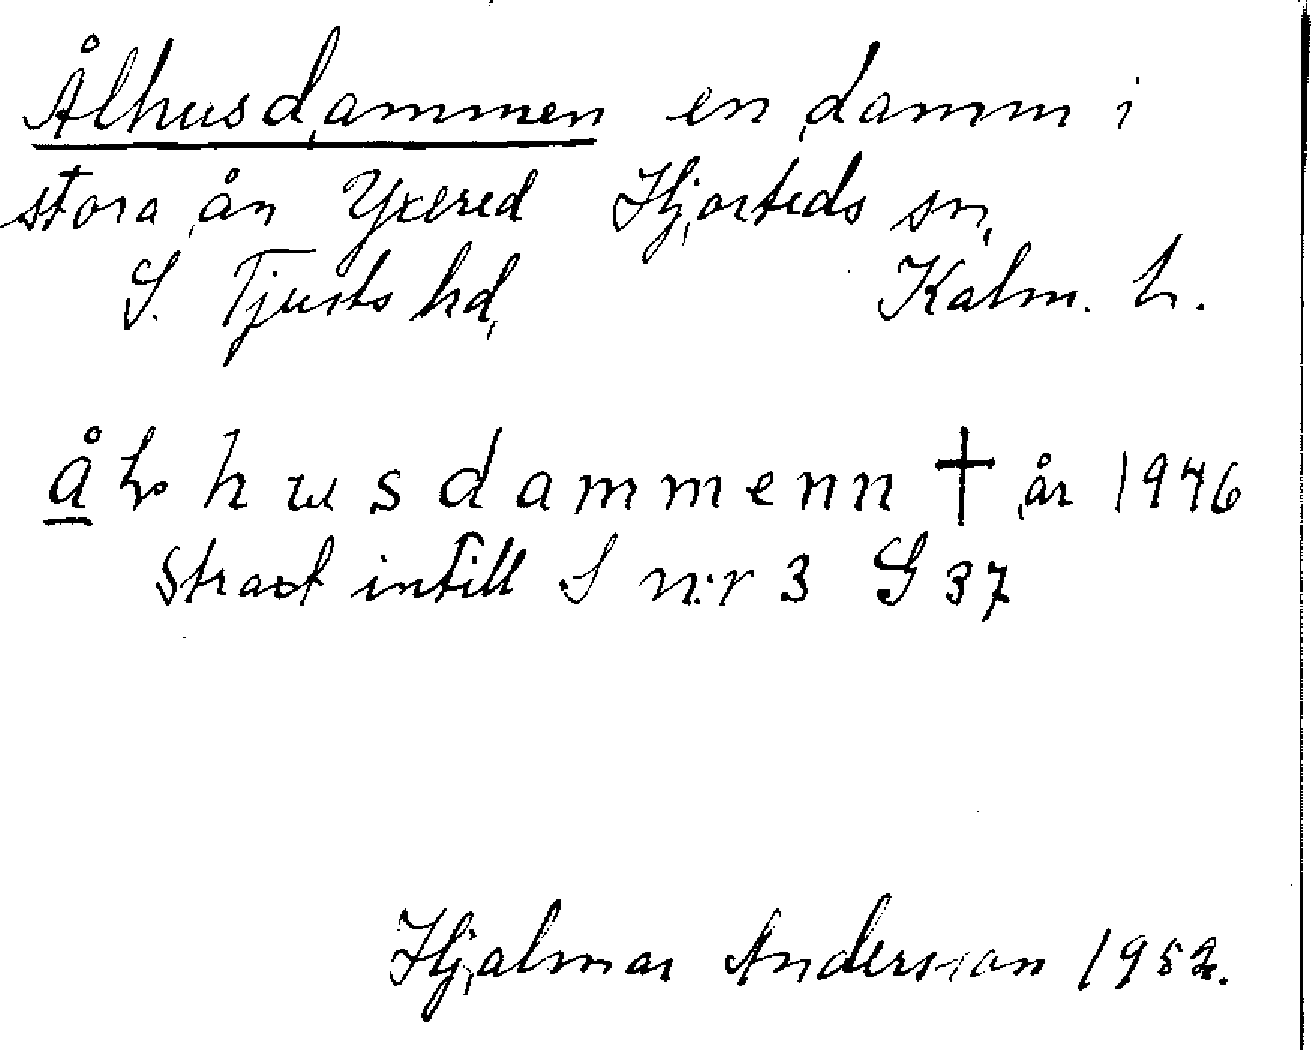 Ålhusdammen en damm i
stora ån Yxered Hjorteds sn,
S. Tjusts hd, Kalm. L.
å h u s d a m m e n n † år 1946
Strax intill S n:r 3 S 37
Hjalmar Andersson 1952.